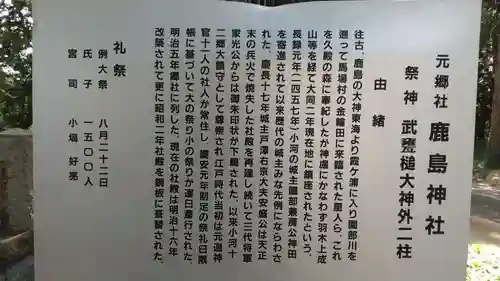 元郷社 鹿島神社
祭神 武甕槌大神外二柱
由緒
往古、鹿島の大神東海より霞ケ浦に入り園部川を
遡って馬場村の金輪田に来臨された里人ら、これ
を久殿の森に奉祀したが神慮にかなわず羽木上成
山等を経て大同二年現在地に鎮座されたという。
長録元年(一四五七年)小河の城主園部兼房公神田
を寄進されて以来歴代の城主みな先例にならわさ
れた、慶長十七年城主戸澤右京太夫安盛公は天正
末の兵火で焼失した社殿を再建し続いて三代将軍
家光公からは御朱印状が下賜された、以来小河十
二郷大鎮守として尊崇され江戸時代当初は元週神
官十一人の社人が常住し、調安元年制定の祭礼日限
帳に基づいて大の祭り小の祭りが運日斎行された
明治五年郷社に列した。現在の社殿は明治十六年
改築されて更に昭和二年社殿を銅板に葺替された。
礼祭
例大祭 八月二十二日
氏子 一五〇〇人
宮司 小塙 好亮